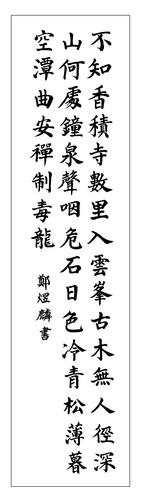 不知香積寺數里入雲峯古木無人徑深
山何處鐘泉聲咽危石日色冷青松薄暮
空潭曲安禪制毒龍
鄭煜麟書